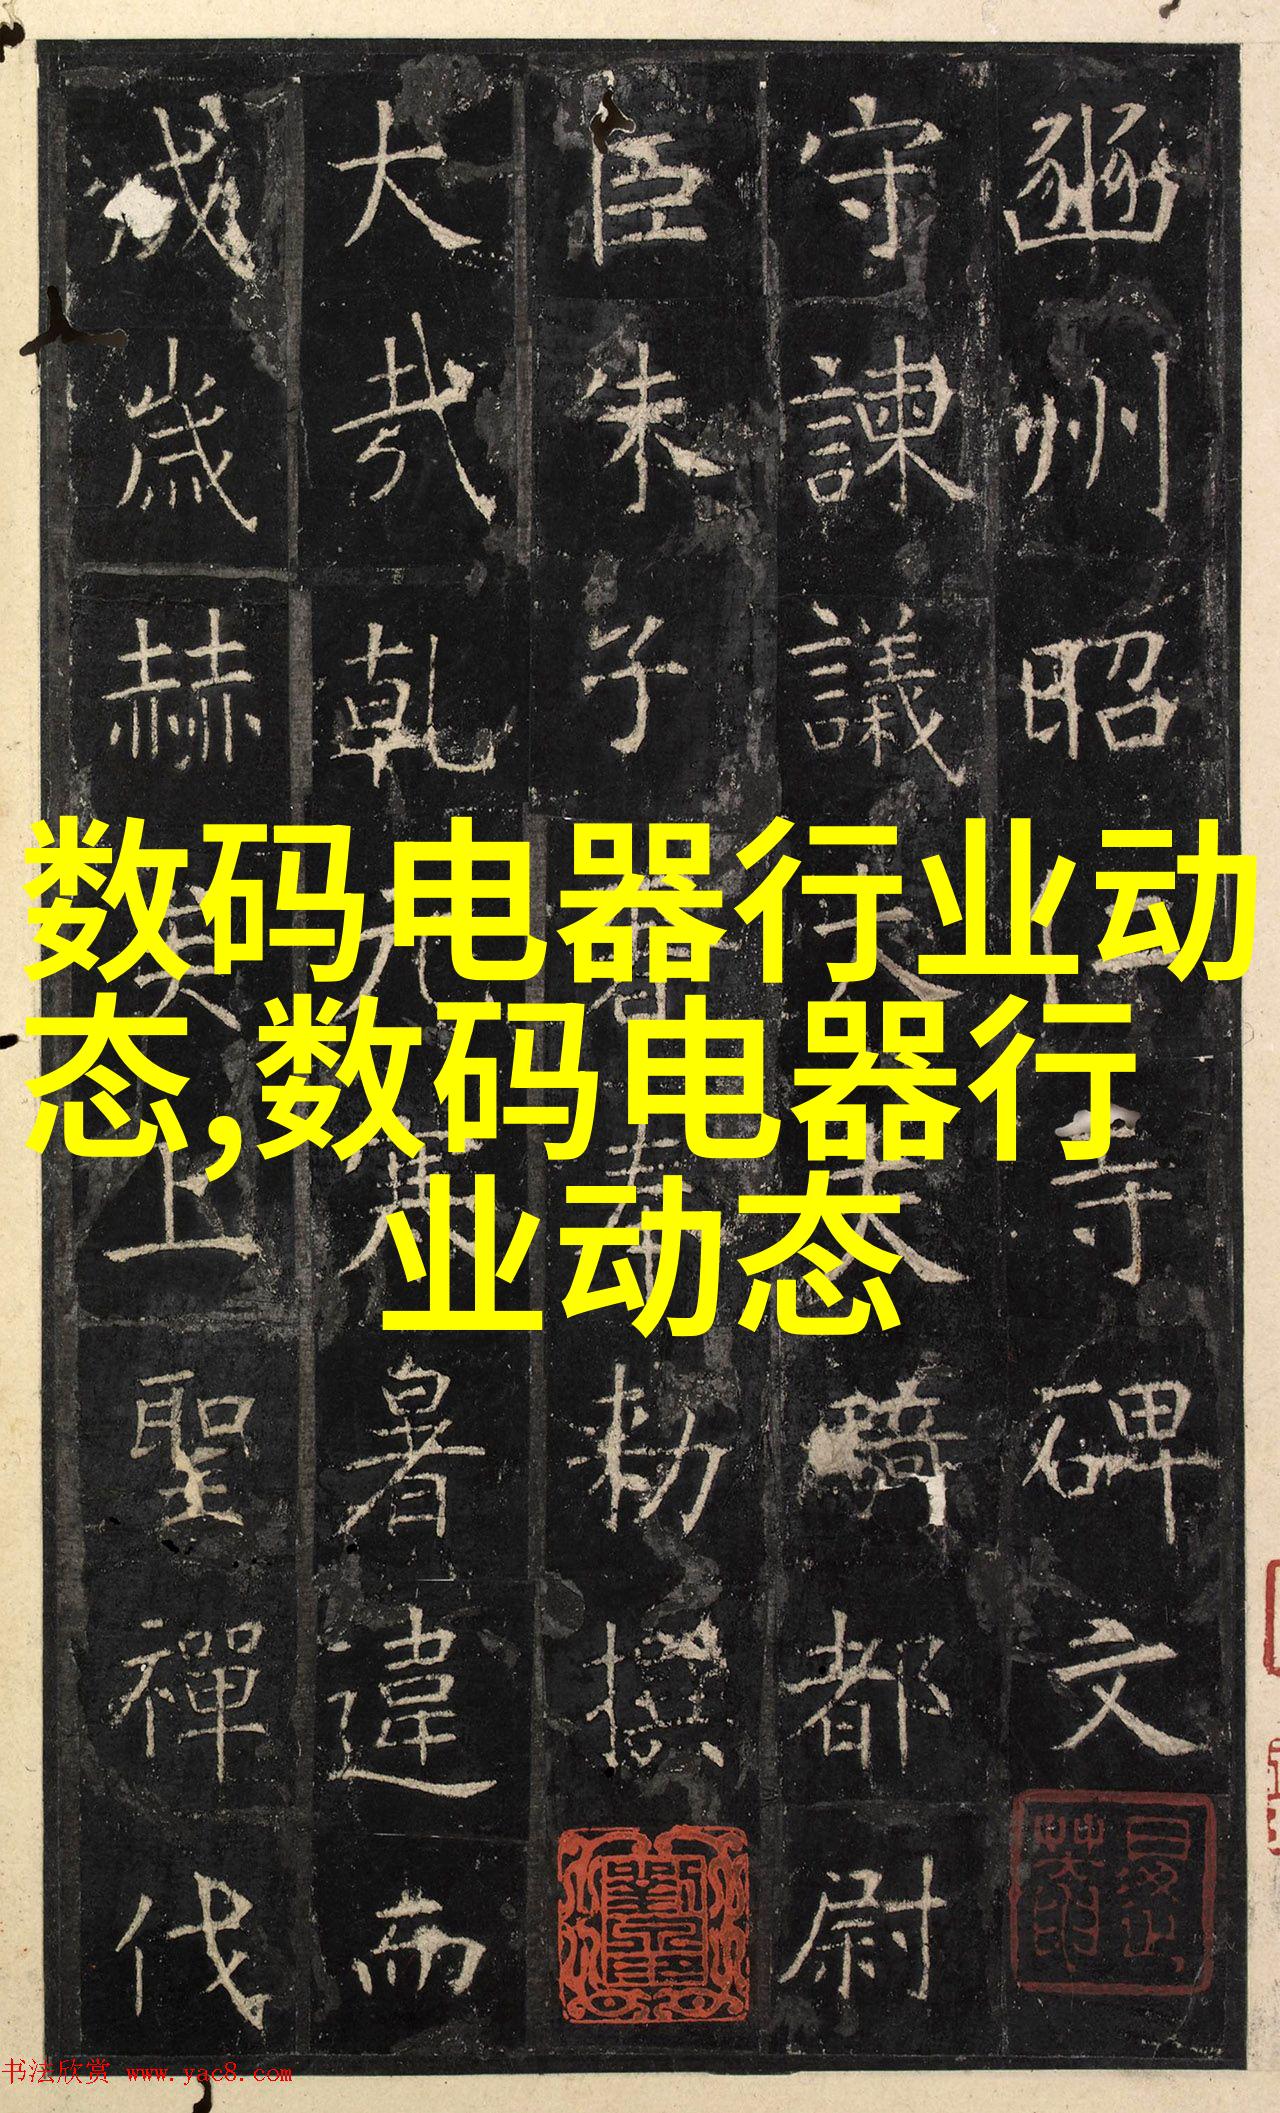 数码电器行业动
态,数码电器行
业动态
豳州昭寺碑文
守諫議大夫騎都尉
臣朱子奉勑撰
大哉乾元寒暑違而
成歲赫矣上聖禪代
书法欣赏 www.yac8.com